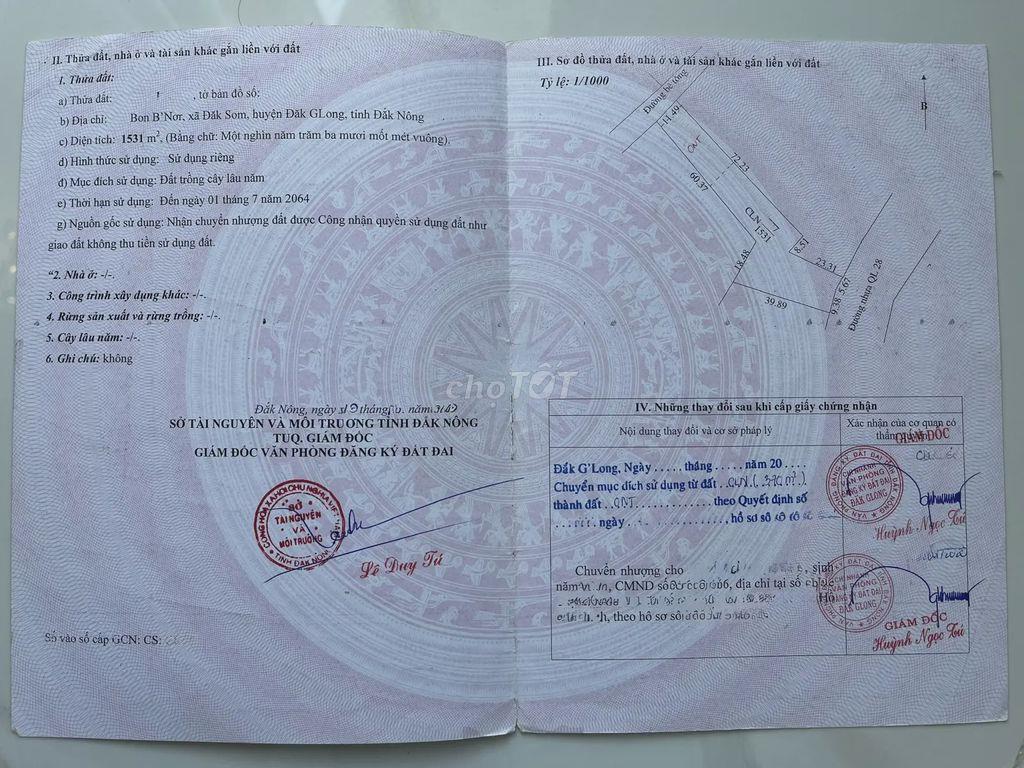 II. Thửa đất, nhà ở và tài sản khác gắn liền với đất
1. Thửa đất:
a) Thửa đất: , tờ bản đồ số:
b) Địa chỉ: Bon B'Nơr, xã Đăk Som, huyện Đăk GLong, tỉnh Đắk Nông
c) Diện tích: 1531 m², (Bằng chữ: Một nghìn năm trăm ba mươi mốt mét vuông),
d) Hình thức sử dụng: Sử dụng riêng
đ) Mục đích sử dụng: Đất trồng cây lâu năm
e) Thời hạn sử dụng: Đến ngày 01 tháng 7 năm 2064
g) Nguồn gốc sử dụng: Nhận chuyển nhượng đất được Công nhận quyền sử dụng đất như
giao đất không thu tiền sử dụng đất.
"2. Nhà ở: -/-.
3. Công trình xây dựng khác: -/-.
4. Rừng sản xuất và rừng trồng: -/-.
5. Cây lâu năm: -/-.
6. Ghi chú: không
Đắk Nông, ngày tháng năm
SỞ TÀI NGUYÊN VÀ MÔI TRƯỜNG TỈNH ĐẮK NÔNG
TUQ. GIÁM ĐỐC
GIÁM ĐỐC VĂN PHÒNG ĐĂNG KÝ ĐẤT ĐAI
SỞ
TÀI NGUYÊN
VÀ
MÔI TRƯỜNG
TỈNH ĐẮK NÔNG
Lê Duy Tú
Số vào sổ cấp GCN: CS:
III. Sơ đồ thửa đất, nhà ở và tài sản khác gắn liền với đất
Tỷ lệ: 1/1000
B
Đường bê tông
11.49
ONT
72.23
60.37
CLN
1531
8.51
18.48
23.31
5.67
39.89
9.38
Đường nhựa QL 28
chợTỐT
IV. Những thay đổi sau khi cấp giấy chứng nhận
Nội dung thay đổi và cơ sở pháp lý
Xác nhận của cơ quan có
thẩm
GIÁM ĐỐC
Đắk G'Long, Ngày ..... tháng ...... năm 20 ....
Chuyển mục đích sử dụng từ đất
thành đất ONT theo Quyết định số
ngày , hồ sơ số
CHI NHÁNH
VĂN PHÒNG
ĐĂNG KÝ ĐẤT ĐAI
ĐẮK GLONG
Huỳnh Ngọc Tú
Chuyển nhượng cho , sinh
năm , CMND số , địa chỉ tại số
, theo hồ sơ số
CHI NHÁNH
VĂN PHÒNG
ĐĂNG KÝ ĐẤT ĐAI
ĐẮK GLONG
GIÁM ĐỐC
Huỳnh Ngọc Tú